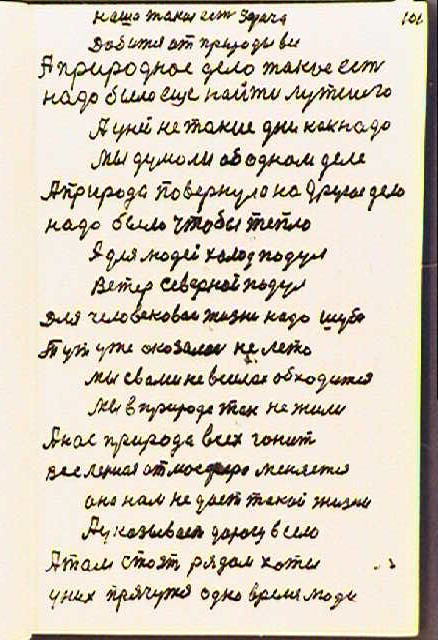 101
наша такая есть задача
Добится от природы все
А природное дело такое есть
надо было еще найти лутшего
А у ней не такие дни как надо
Мы думоли об одном деле
А природа повернула на другое дело
надо было чтобы тепло
А для людей холод подул
Ветер северной подул
Для человековой жизни надо шуба
Тут уже оказалось не лето
Мы с вами не в силах обходится
Мы в природе так не жили
А нас природа всех гонит
вселенная атмосфера меняется
она нам не дает такой жизни
А указывает дорогу в село
А там стоят рядом хоты
у них прячутся одно время люди